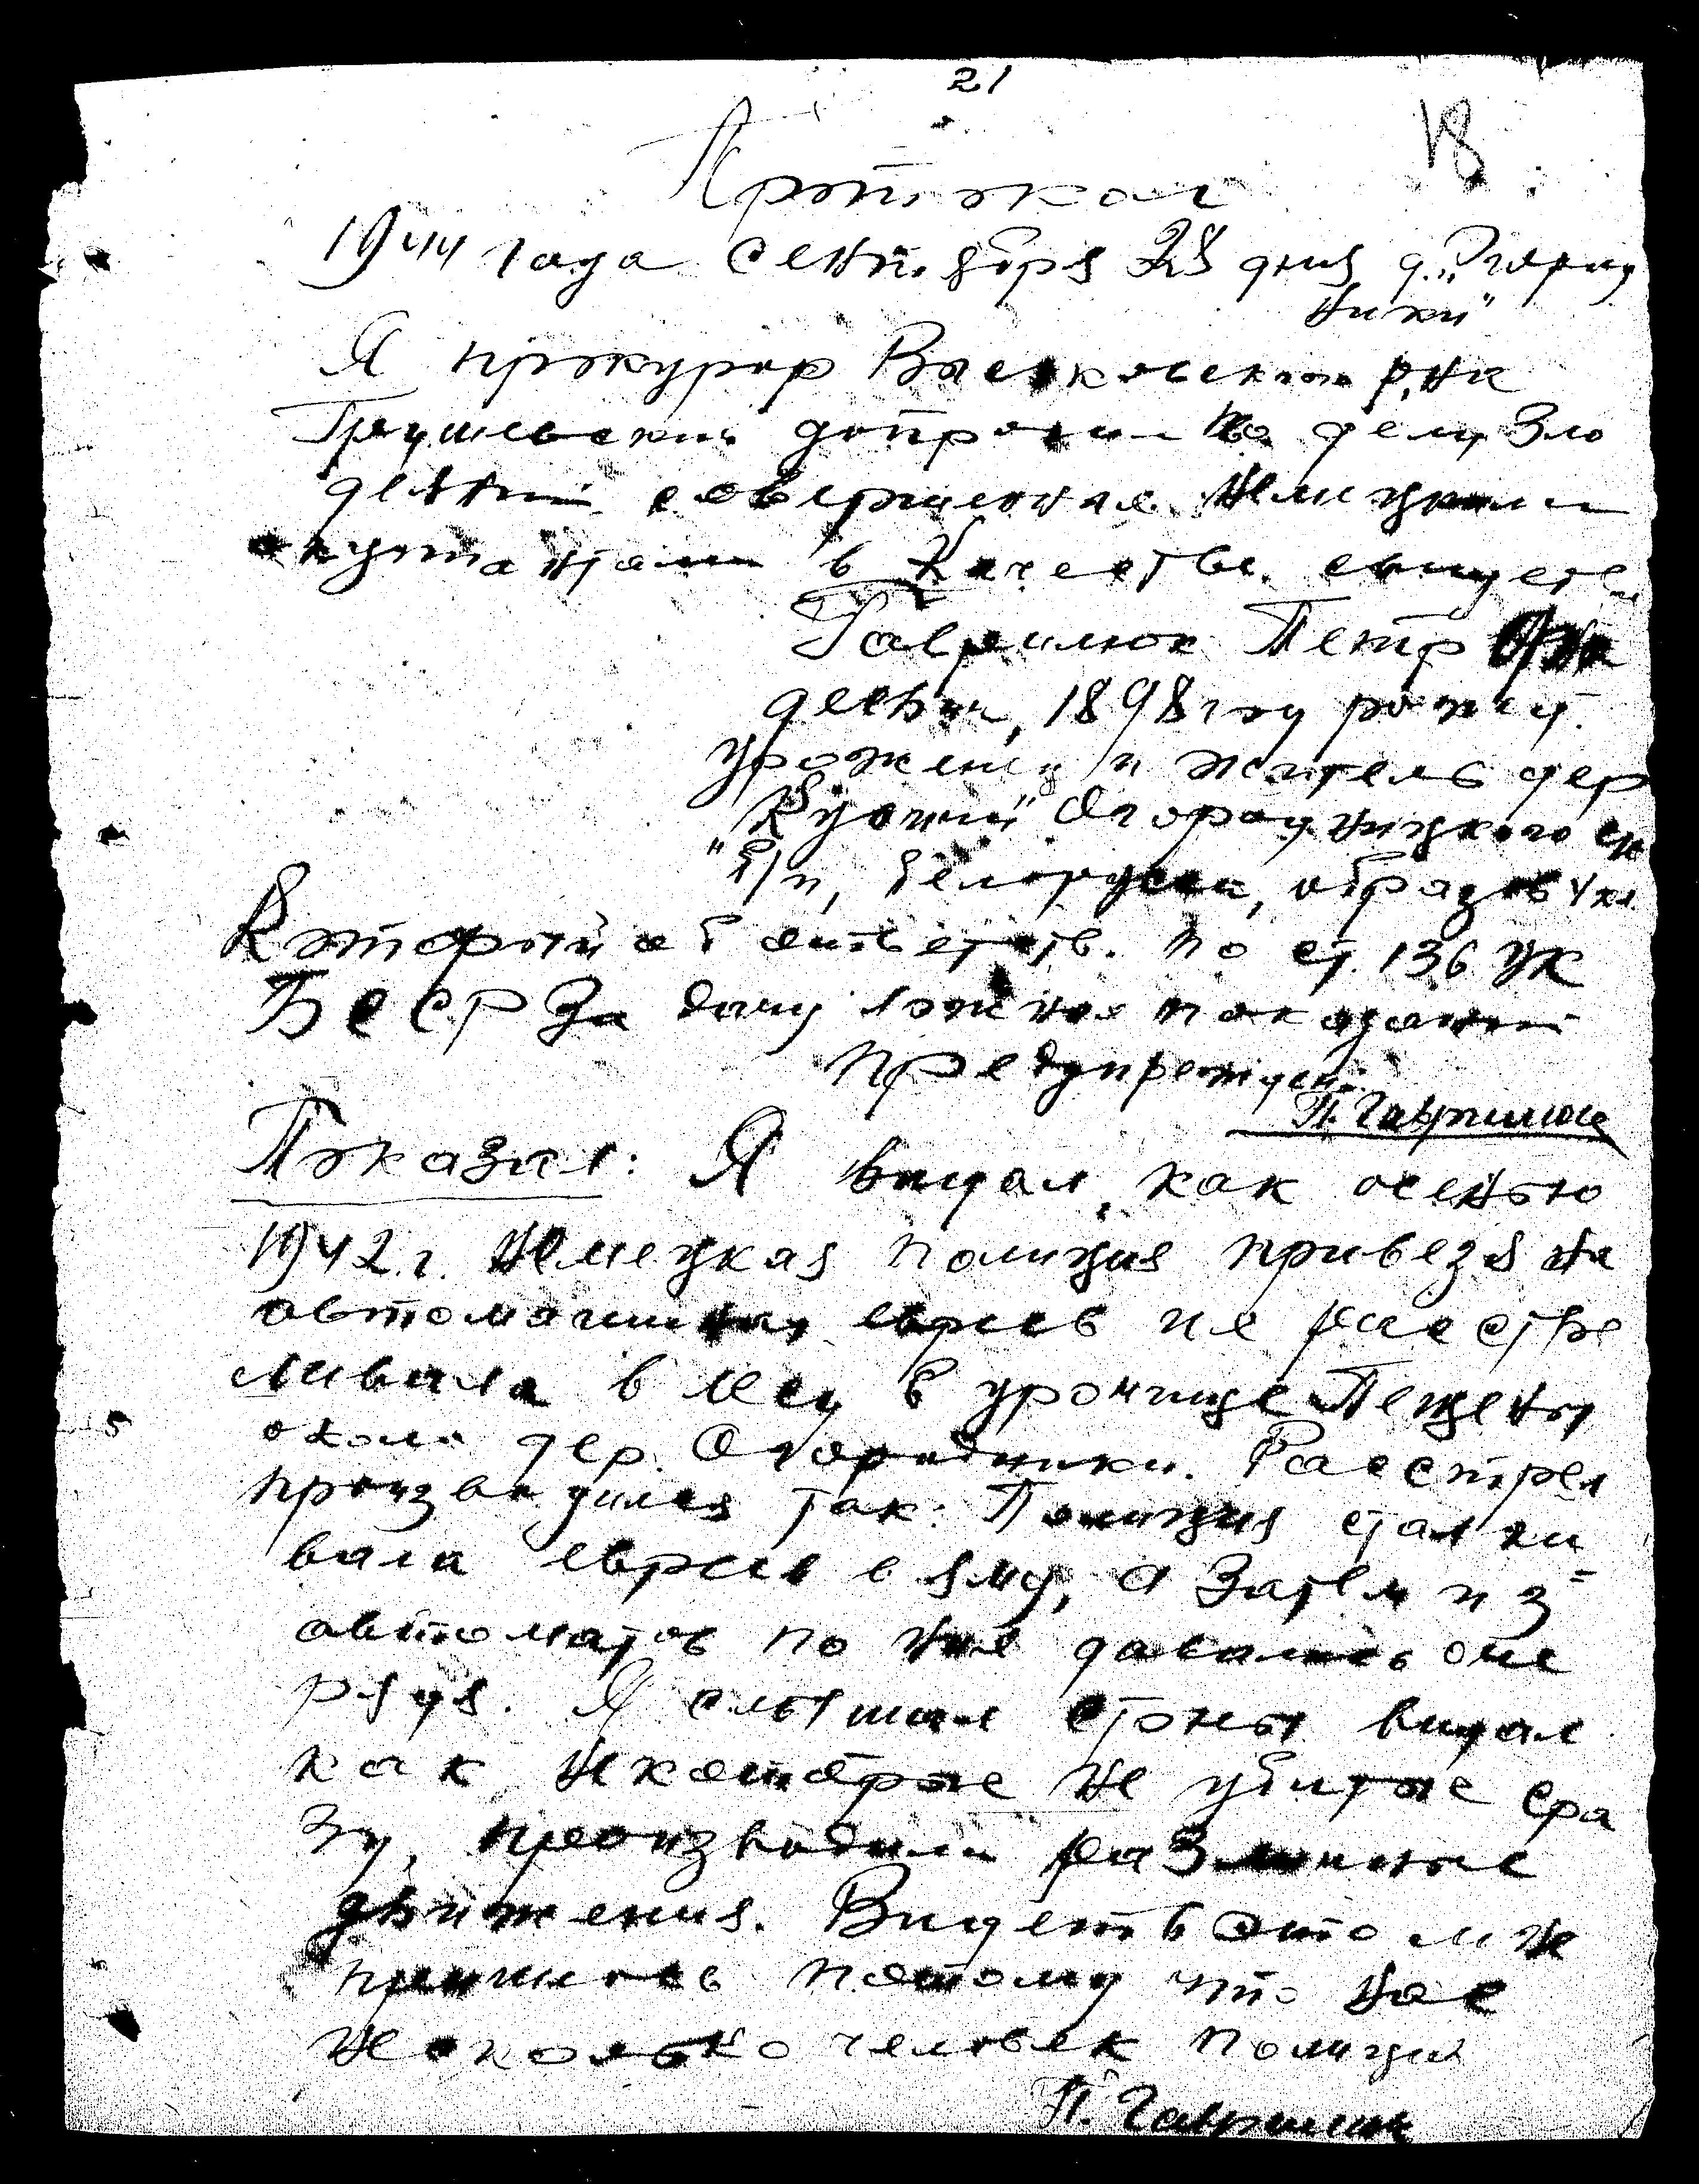 21
18
Протокол
1944 года сентября 28 дня д. "Огород
ники"
Я прокурор Высоковского р-на
допросил по делу зло
деяний совершенных немецкими
окупантами в качестве свидетеля
Гаврилюк Петр
1898 году рожд.
уроженец и житель дер
Огородницкого с/с
б/п, белорусс, образов 4 кл.
Который об ответств. по ст. 136 УК
БССР за дачу ложных показаний
предупрежден.
П. Гаврилюк
Показал: Я видал, как осенью
1942 г. немецкая полиция привезя на
автомашинах евреев их расстре
ливала в лесу в урочище Пещены
около дер. Огородники. Расстрел
производился так: Полиция сталки
вала евреев в яму, а затем из
автоматов по ним давались оче
рядя. Я слышал стоны видал
как некоторые не убитые сра
зу, производили различные
движения. Видеть это мне
пришлось потому что нас
несколько человек полиция
П. Гаврилюк